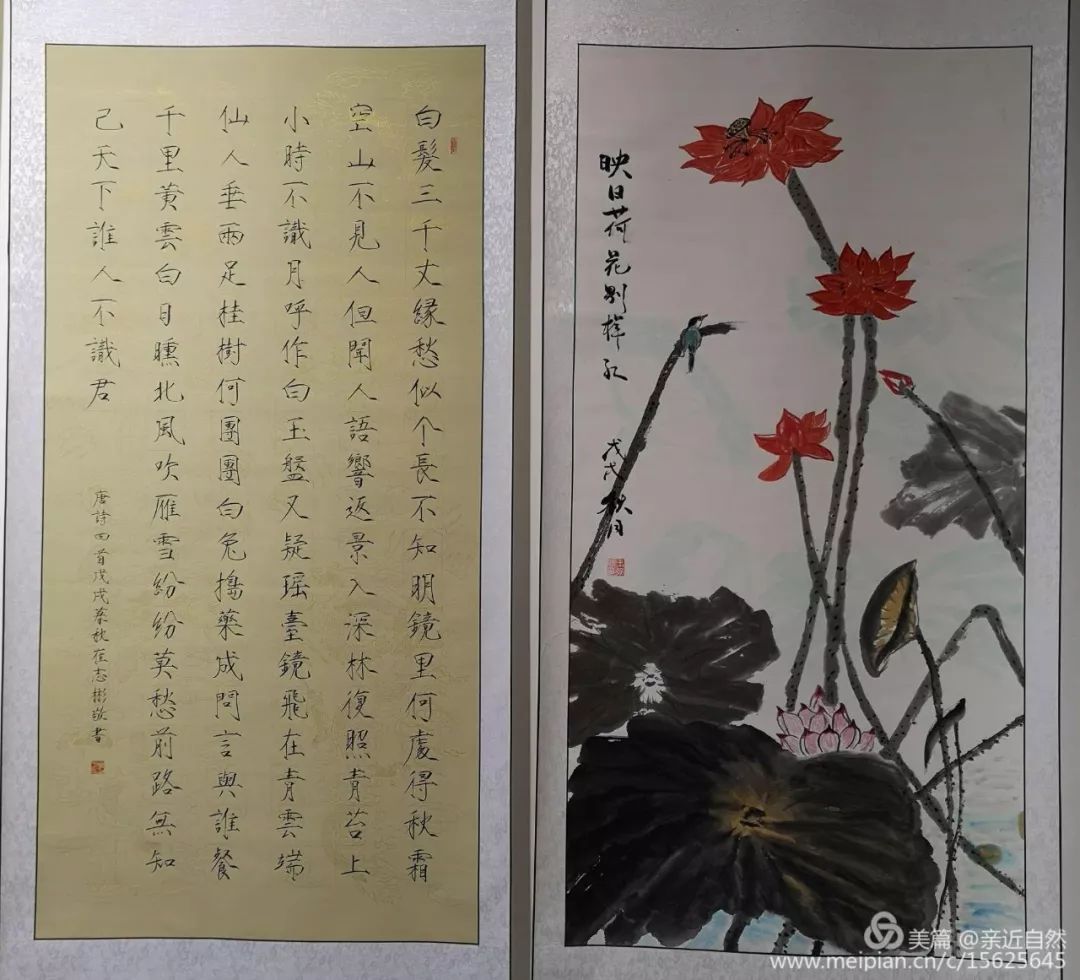 白髮三千丈緣愁似个長不知明鏡里何處得秋霜
空山不見人但聞人語響返景入深林復照青苔上
小時不識月呼作白玉盤又疑瑶臺鏡飛在青雲端
仙人垂兩足桂樹何團團白兔搗藥成問言與誰餐
千里黃雲白日曛北風吹雁雪紛紛莫愁前路無知
己天下誰人不識君
唐詩四首戊戌暮秋崔志彬敬書
映日荷花別樣紅
戊戌秋月
美篇 @亲近自然
www.meipian.cn/c/15625645